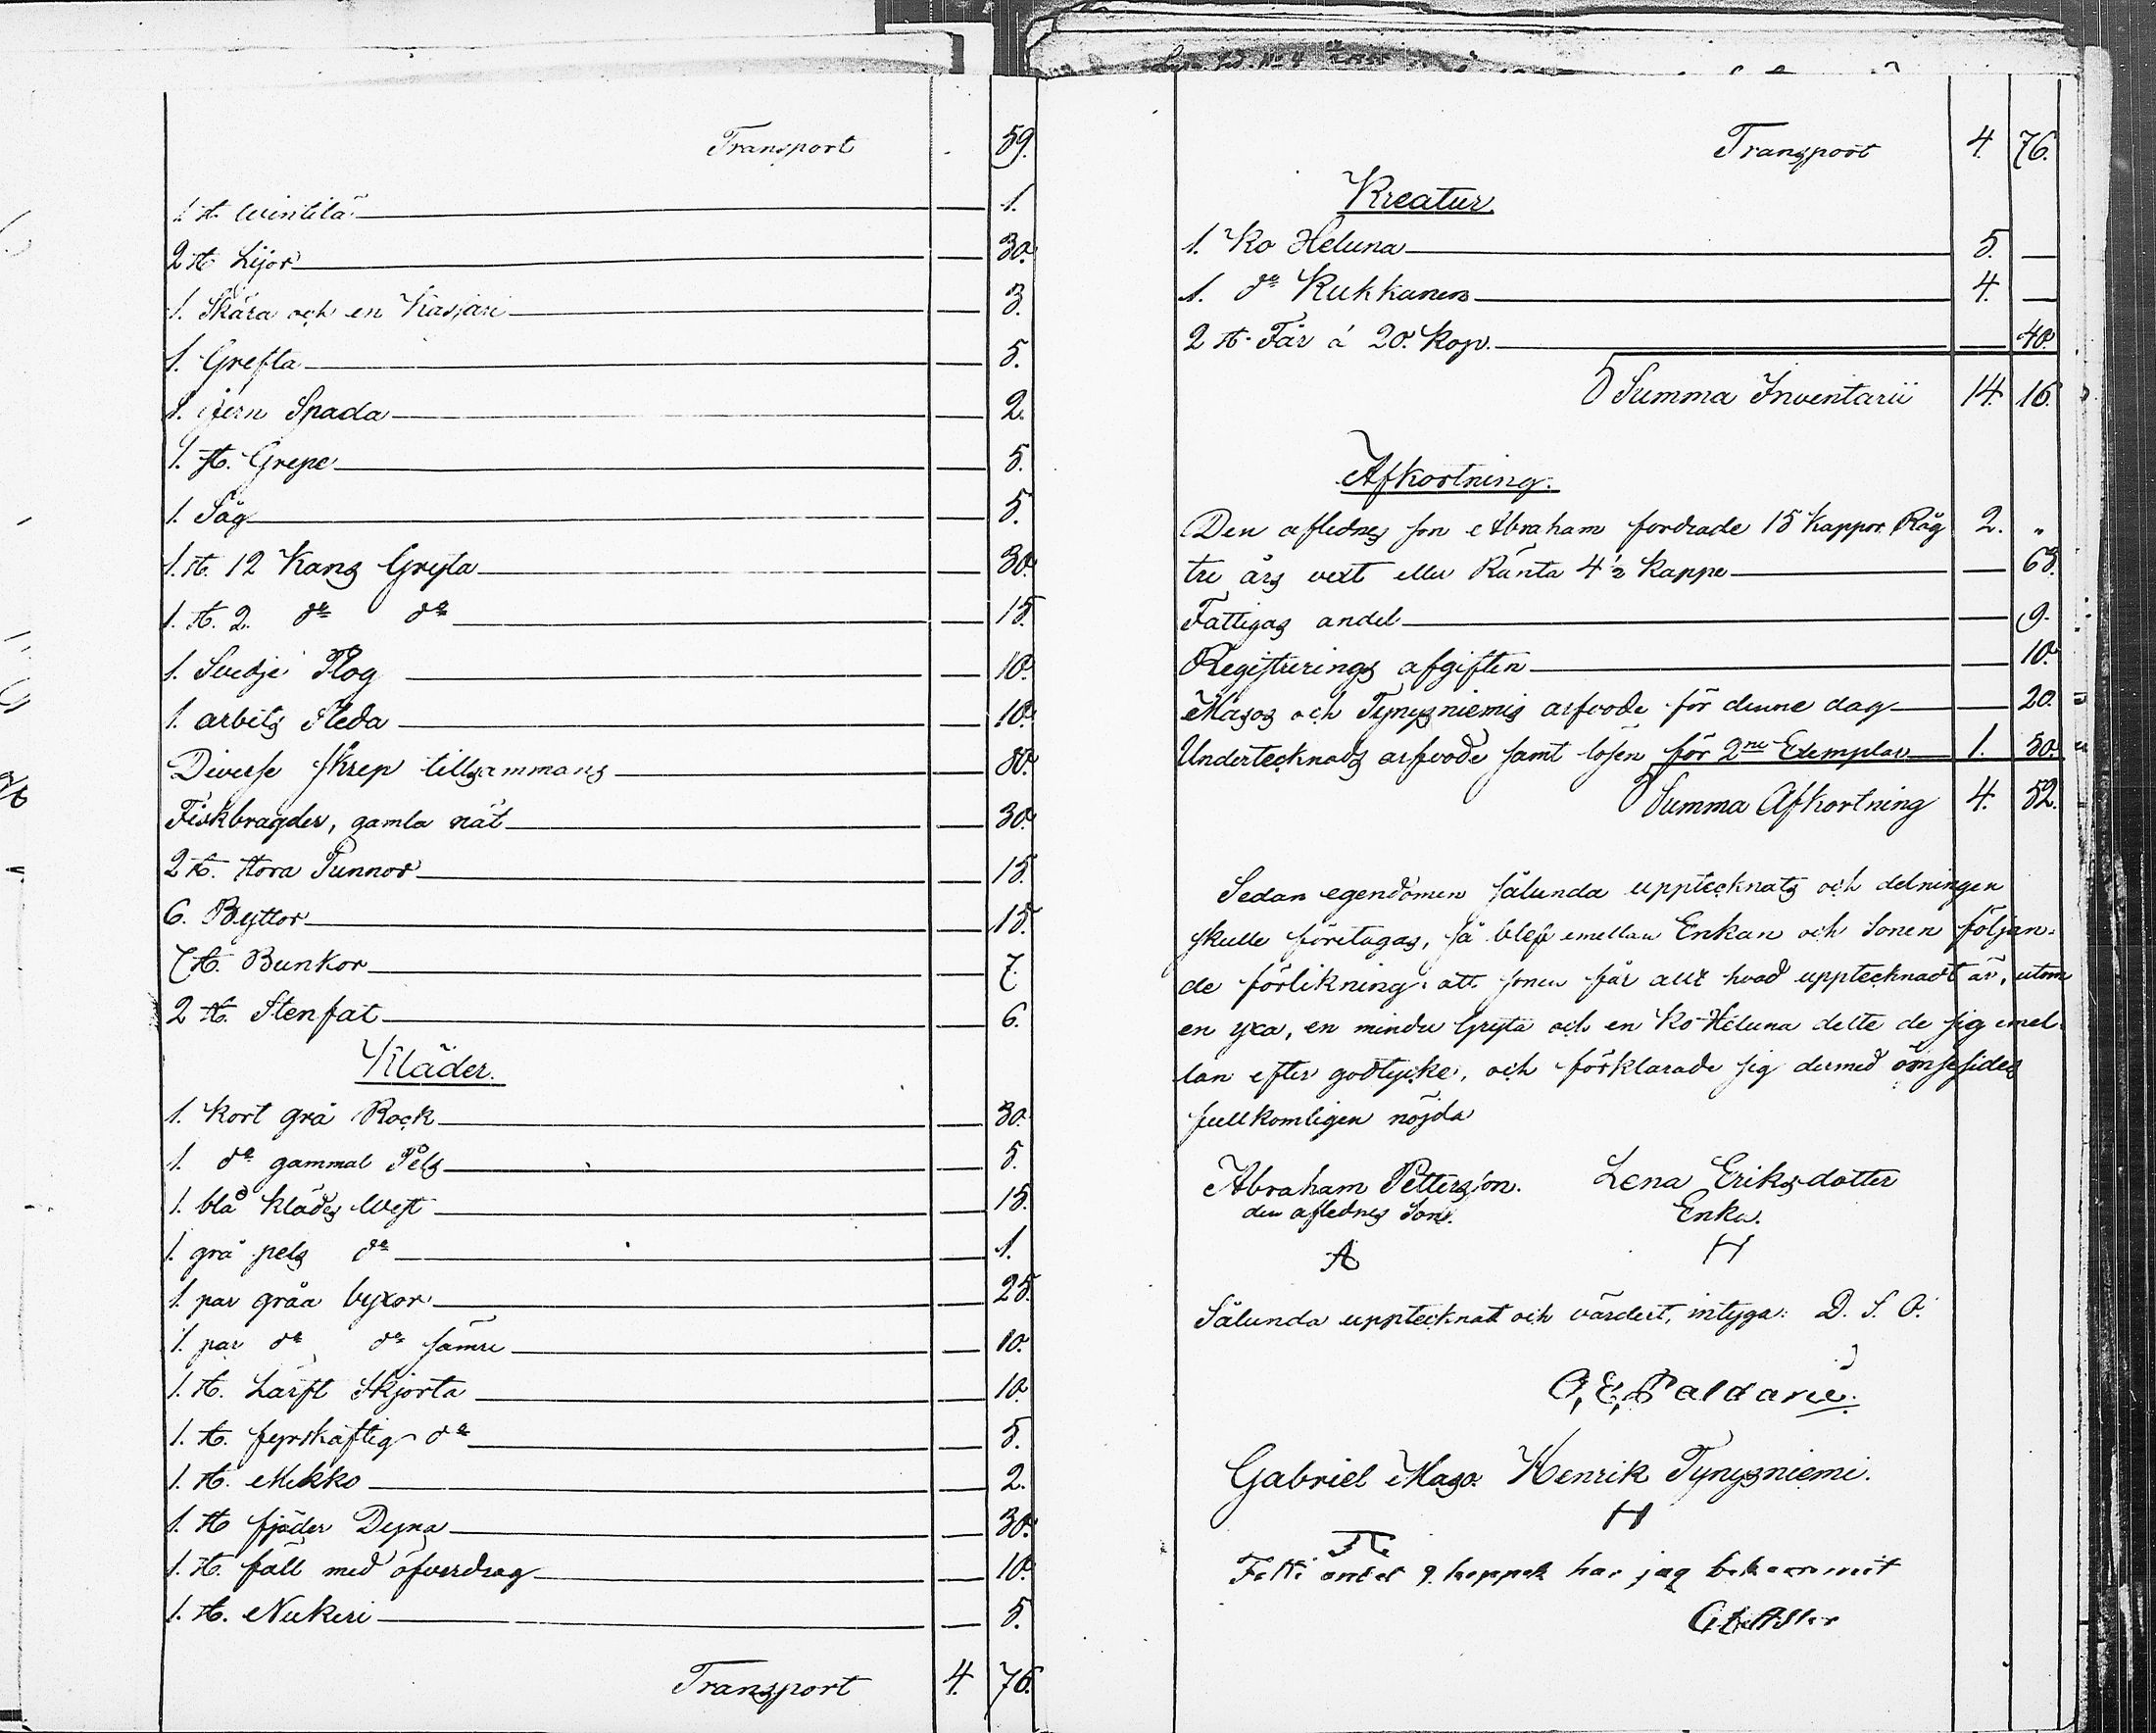 Transport 59.
1 st. Wintilä 1.
2 st. Lijor 30.
1. Skära och en Kasjari 3.
1. Grefta 5.
1. jern Spada 2.
1. st. Grepe 5.
1. Såg 5.
1. st. 12 Kans Gryta 30.
1. st. 2. do do 15.
1. Svedje Plog 10.
1. arbets Sleda 10.
Diverse skrep tillsammans 80.
Fiskbragder, gamla nät 30.
2 st. stora Tunnor 15.
6. Byttor 15.
7 st. Bunkor 7.
2 st. Stenfat 6.
Kläder.
1. Kort grå Rock 30.
1. do gammal Pels 5.
1. blå klädes West 15.
1. grå pels do 1.
1. par gråa byxor 25.
1. par do do sämre 10.
1. st. Lärft Skjorta 10.
1. st. fyrskäftig do 5.
1. st. Mekko 2.
1. st. fjäder Dyna 30.
1. st. fäll med öfverdrag 10.
1. st. Nukeri 5.
Transport 4. 76.
Transport 4. 76.
Kreatur.
1. Ko Heluna 5. —
1. do Kukkanen 4. —
2 st. Får á 20. Kop. 40.
Summa Inventarii 14. 16.
Afkortning.
Den aflednes son Abraham fordrade 15 Kappor Råg 2. "
tre års vext eller Ränta 4 1/2 Kappe 63.
Fattigas andel 9.
Registerings afgiften 10.
Masos och Tynysniemis arfvode för denne dag 20.
Undertecknads arfvode samt lösen för 2ne Exemplar 1. 50.
Summa Afkortning 4. 52.
Sedan egendomen sålunda upptecknats och delningen
skulle företagas, så blef emellan Enkan och Sonen följan-
de förlikning: att sonen får allt hvad upptecknadt är, utom
en yxa, en mindre Gryta och en Ko Heluna delte de sig emel-
lan efter godtycke, och förklarade sig dermed ömsesides
fullkomligen nöjda
Abraham Pettersson. Lena Eriksdotter
den aflednes Son. Enka.
A H
Sålunda upptecknat och värdert, intyga: D. S. O.
O, E, Paldanie.
Gabriel Maso. Henrik Tynysniemi.
H
Fatti andel 9. koppek har jag bekommit